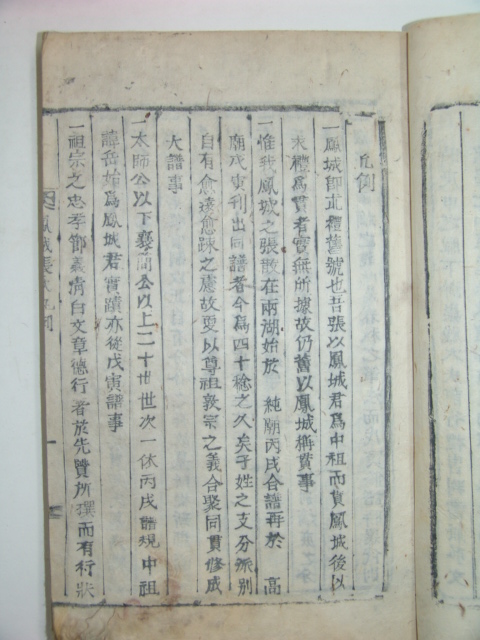 凡例
一鳳城卽求禮舊號也吾張以鳳城君爲中祖而貫鳳城後以
求禮爲貫者實無所據故仍舊以鳳城稱貫事
一惟我鳳城之張散在兩湖始於 純廟丙戌合譜再於 高
廟戊寅刊出同譜者今爲四十稔之久矣子姓之支分派別
自有愈遠愈踈之慮故更以尊祖敦宗之義合聚同貫修成
大譜事
一太師公以下襄簡公以上二十世世次一依丙戌譜規中祖
諱岳始爲鳳城君實蹟亦從戊寅譜事
一祖宗之忠孝節義淸白文章德行者於先賢所撰而有行狀
鳳城張氏凡例